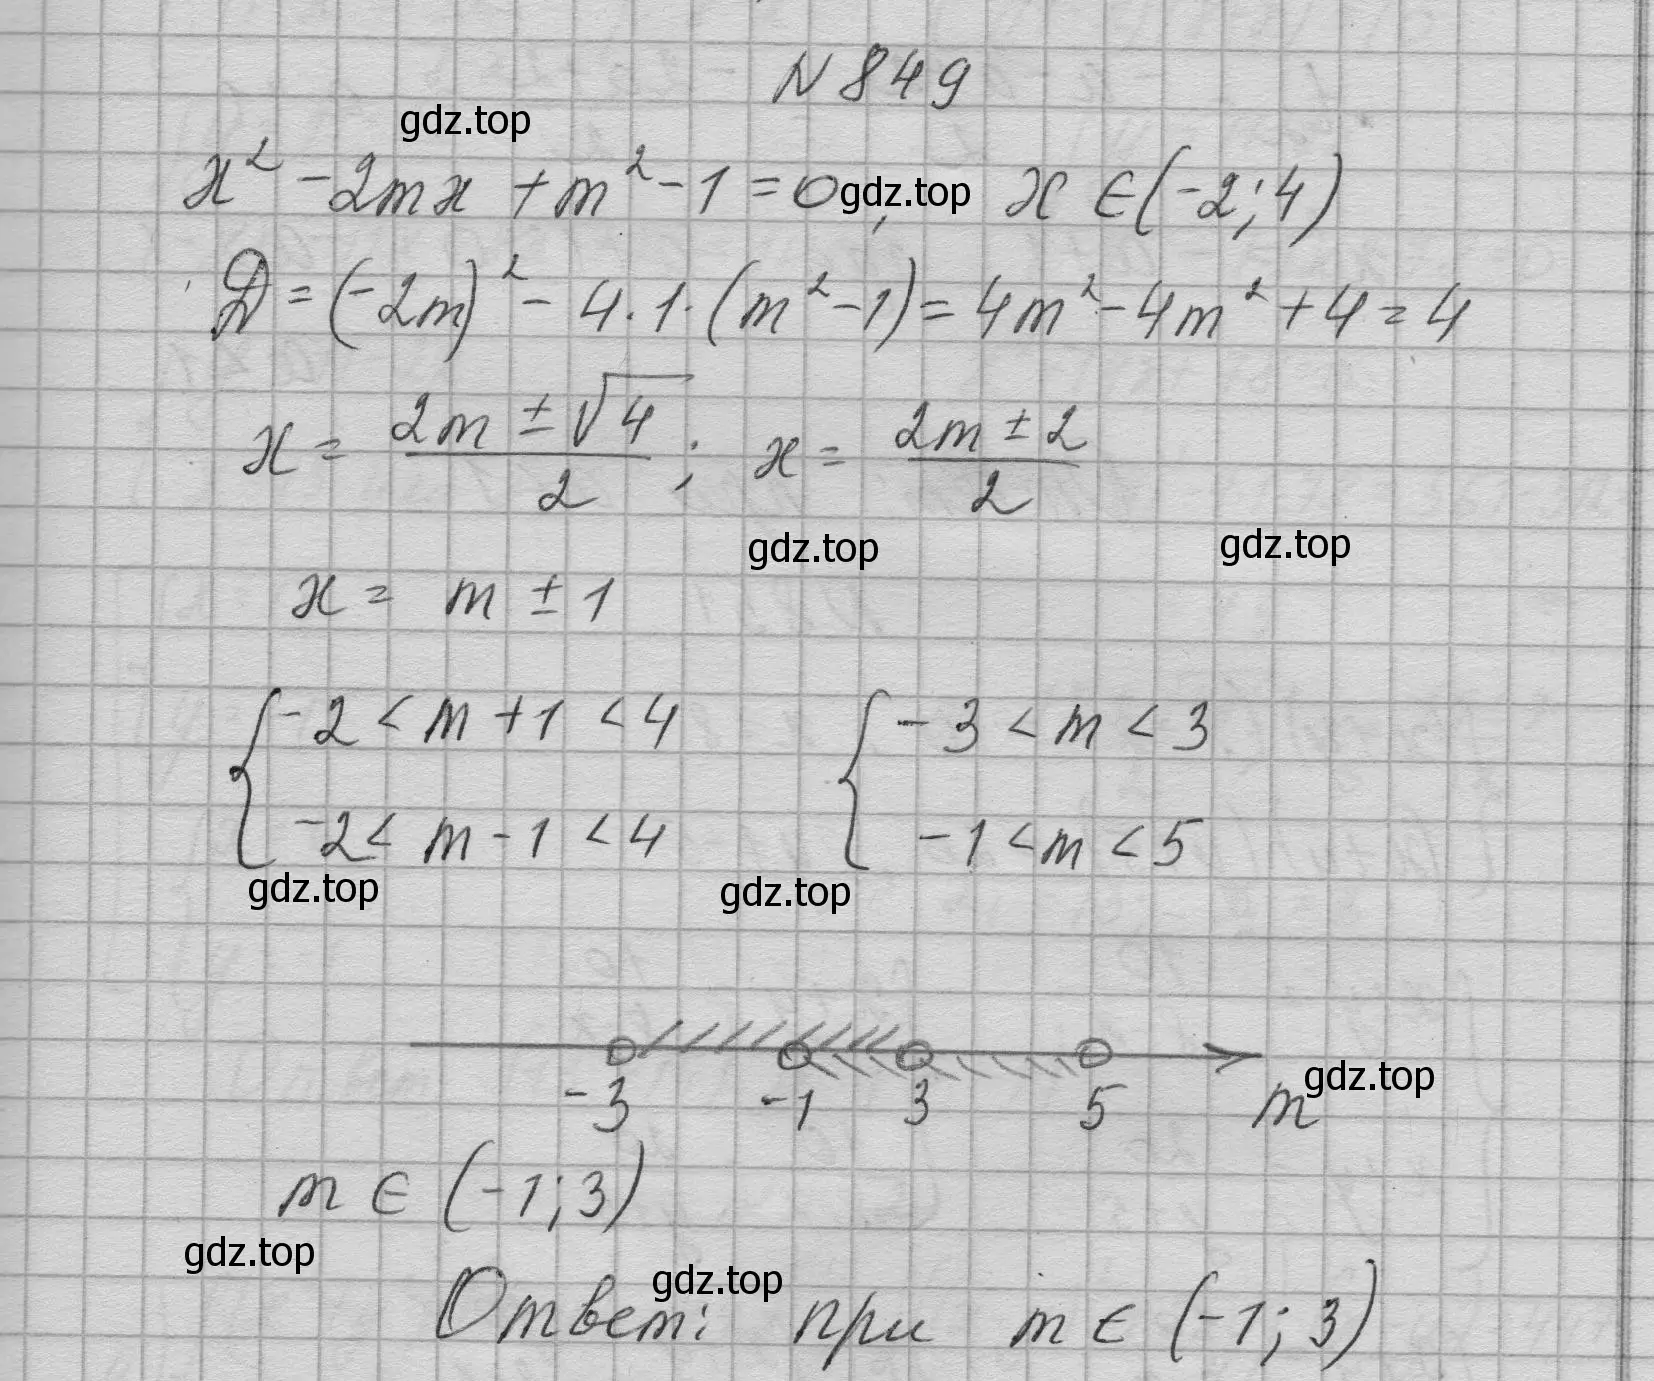 N 849
gdz.top
x² - 2mx + m² - 1 = 0, gdz.top x ∈ (-2; 4)
D = (-2m)² - 4·1·(m² - 1) = 4m² - 4m² + 4 = 4
x = (2m ± √4)/2 ; x = (2m ± 2)/2
gdz.top gdz.top
x = m ± 1
{ -2 < m + 1 < 4 { -3 < m < 3
-2 < m - 1 < 4 -1 < m < 5
gdz.top gdz.top
-3 -1 3 5 m gdz.top
m ∈ (-1; 3)
gdz.top gdz.top
Ответ: при m ∈ (-1; 3)